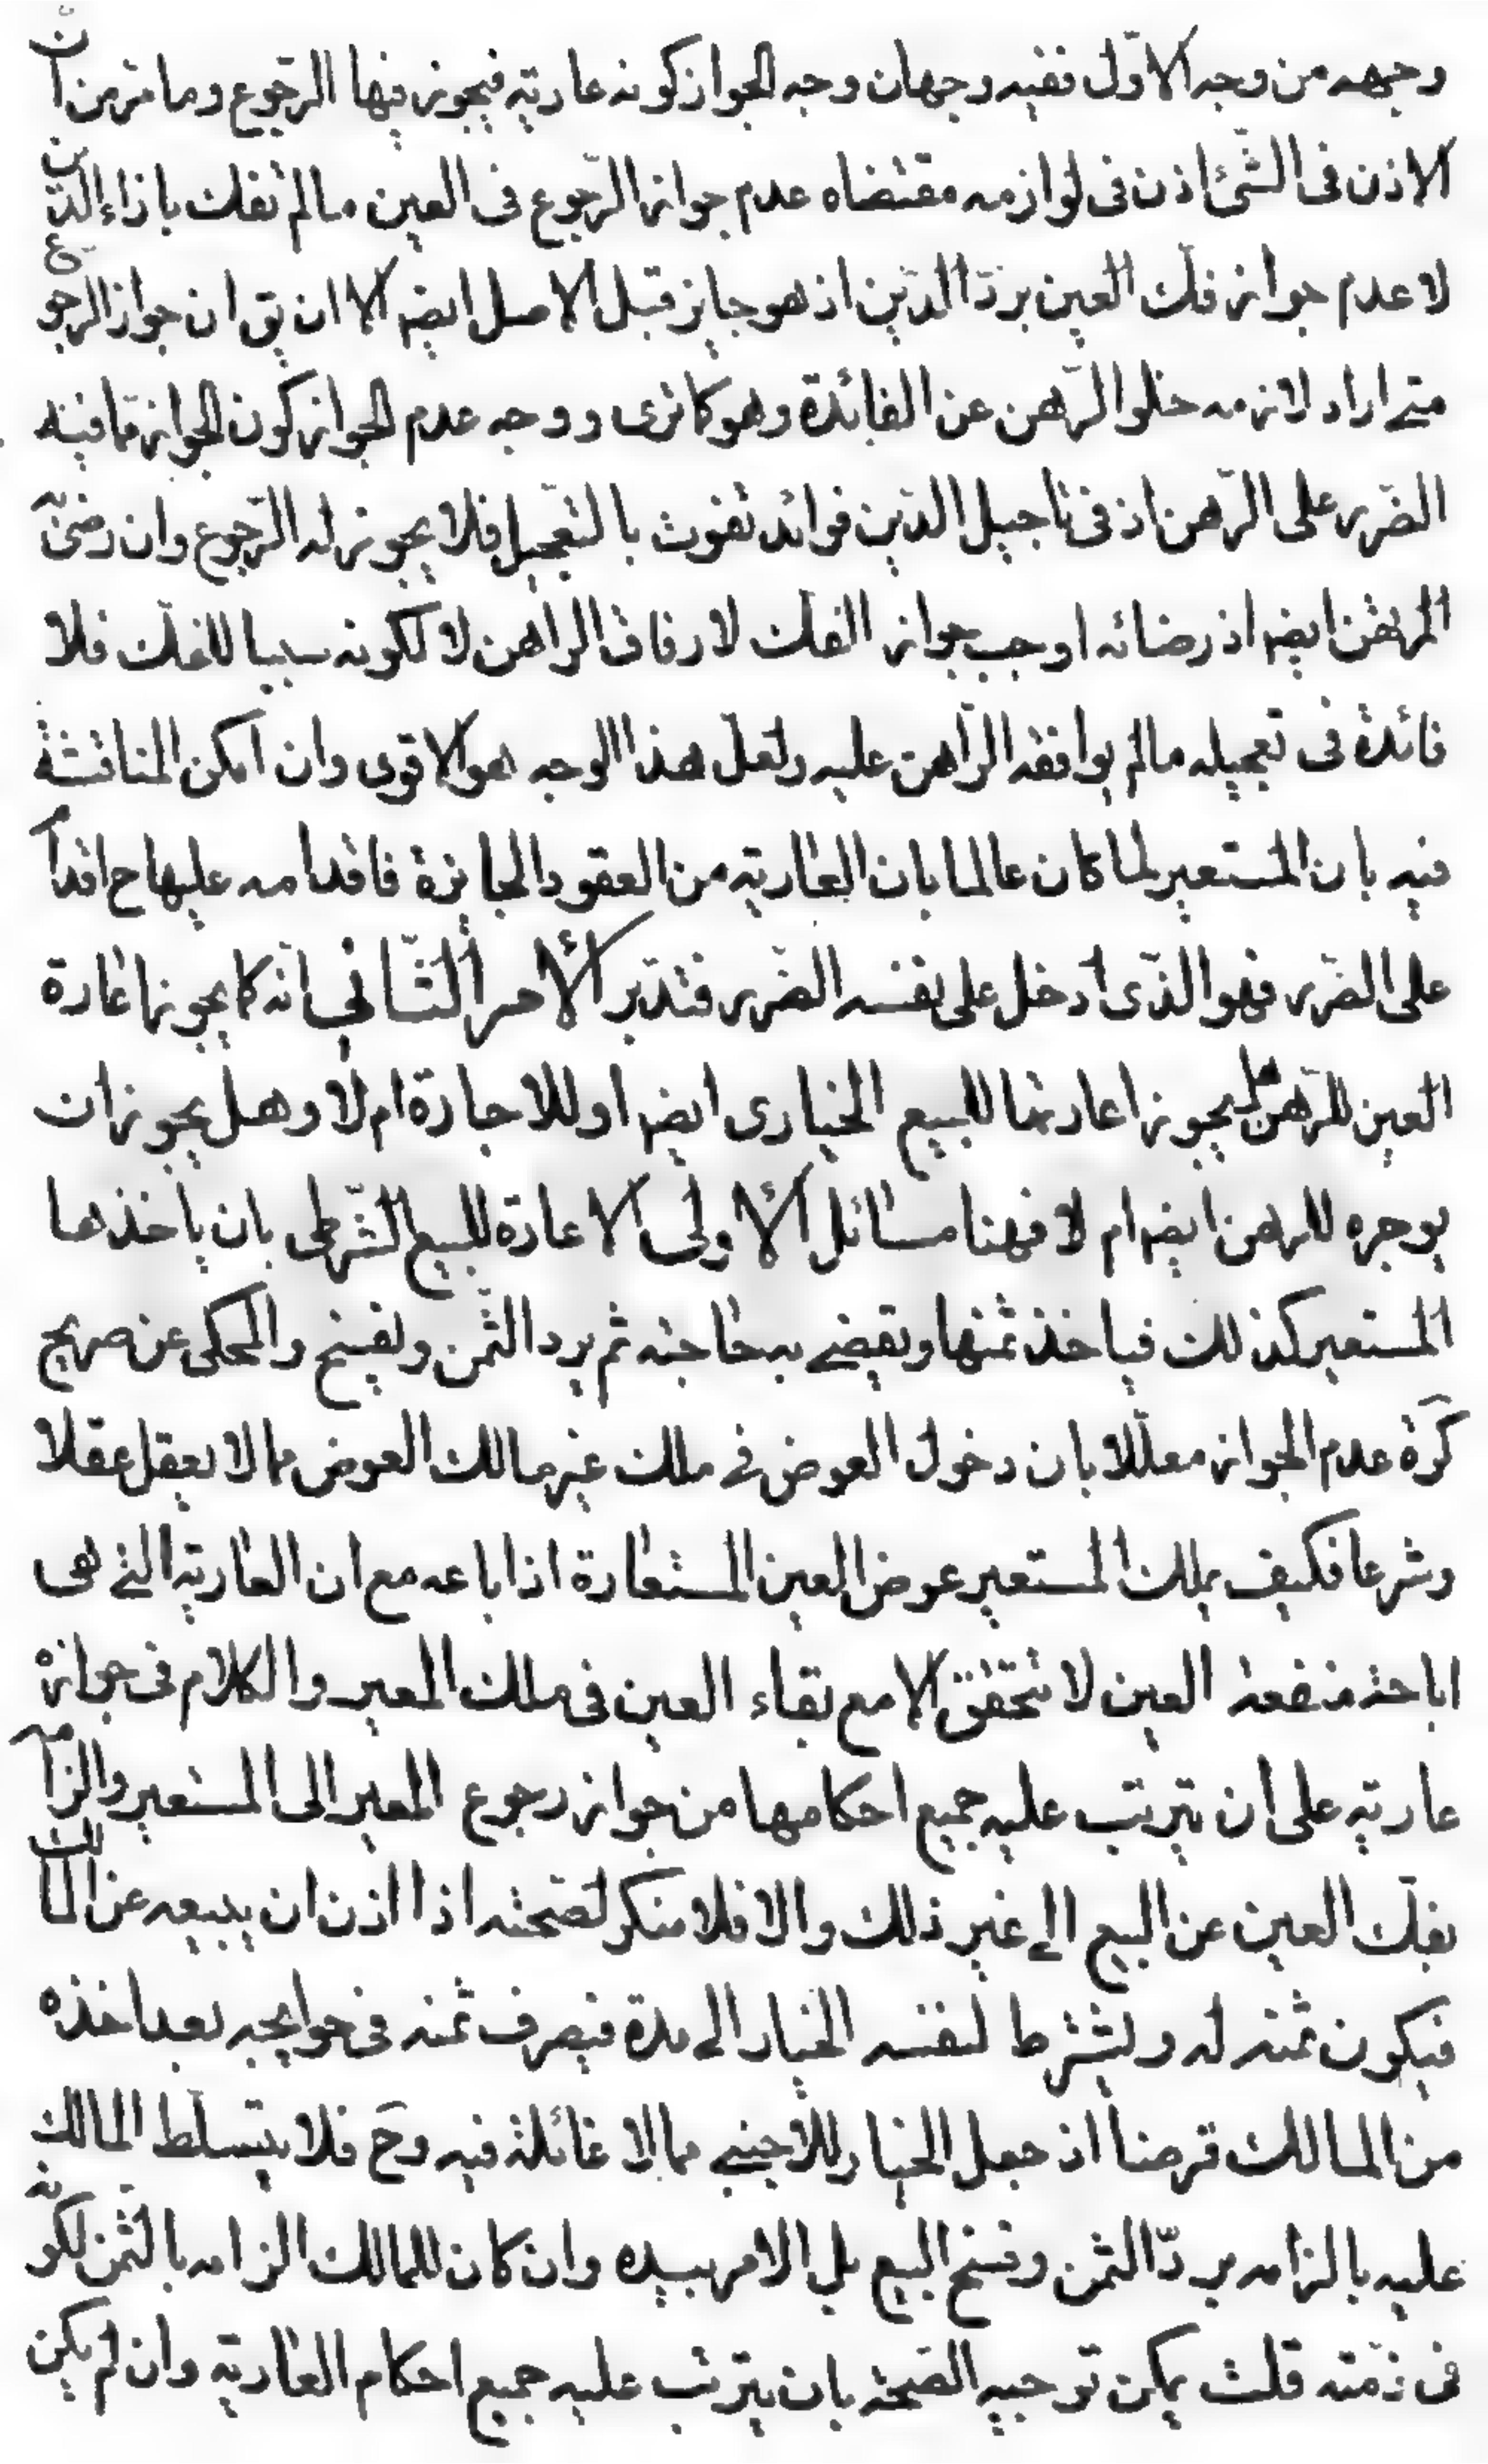 وجهه من وجه الاول ففيه وجهان وجه الجواز كونه عارية فيجوز فيها الرجوع وما مر من ان
الاذن فى الشئ اذن فى لوازمه مقتضاه عدم جواز الرجوع فى العين مالم تفك بازاء الدين
لا عدم جواز فك العين برد الدين اذ هو جايز قبل الاصل ايضا الا ان يق ان جواز الرجوع
متى اراد لازمه خلو الرهن عن الفائدة وهو كاترى ووجه عدم الجواز كون الجواز مما فيه
الضرر على الرهن اذ فى تاجيل الدين فوائد تفوت بالتعجيل فلا يجوز له الرجوع وان رضى به
المرتهن ايضا اذ رضائه اوجب جواز الفك لارفاق الراهن لا لكونه سببا للفك فلا
فائدة فى تعجيله مالم يوافقه الراهن عليه ولعل هذا الوجه هو الاقوى وان امكن المناقشة
فيه بان المستعير لما كان عالما بان العارية من العقود الجايزة فاقدامه عليها ح اقدام
على الضرر فهو الذى ادخل على نفسه الضرر فتدبر الامر الثانى انه كما يجوز اعارة
العين للرهن هل يجوز اعارتها للبيع الخيارى ايضا او للاجارة ام لا وهل يجوز ان
يوجره للرهن ايضا ام لا فهنا مسائل الاولى الاعارة للبيع الشرطى بان ياخذها
المستعير كذلك فياخذ ثمنها ويقضى به حاجته ثم يرد الثمن ويفسخ والمحكى عن صريح
كرة عدم الجواز معللا بان دخول العوض فى ملك غير مالك العوض مما لا يعقل عقلا
وشرعا فكيف يملك المستعير عوض العين المستعارة اذا باعه مع ان العارية التى هى
اباحة منفعة العين لا تتحقق الا مع بقاء العين فى ملك المعير والكلام فى جوازه
عارية على ان يترتب عليه جميع احكامها من جواز رجوع المعير الى المستعير والزامه
بفك العين عن البيع الى غير ذلك والا فلا منكر لصحته اذا اذن ان يبيعه عن المالك
فيكون ثمنه له ويشترط لنفسه الخيار الى مدة فيصرف ثمنه فى حوايجه بعد اخذه
من المالك قرضا اذ جعل الخيار للاجنبى مما لا غائلة فيه وح فلا يتسلط المالك
عليه بالزامه برد الثمن وفسخ البيع بل الامر بيده وان كان للمالك الزامه بالثمن لكونه
فى ذمته قلت يمكن توجيه الصحة بان يترتب عليه جميع احكام العارية وان لم يكن